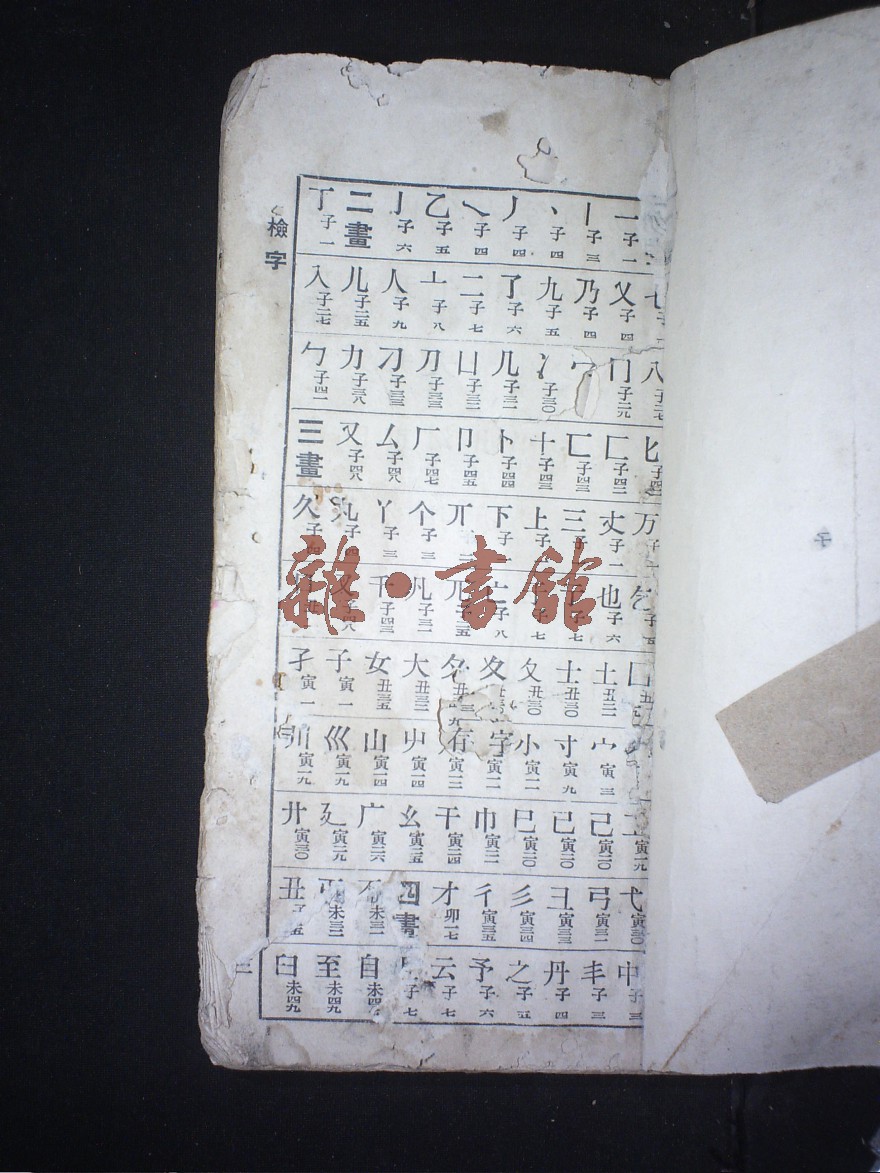 檢字
一 子一 丨 子三 丶 子四 丿 子四 乀 子四 乙 子五 亅 子六 二畫 丁 子一
七 乂 子四 乃 子四 九 子五 了 子六 二 子七 亠 子八 人 子九 儿 子二五 入 子二七
八 子二七 冂 子二九 冖 冫 子三〇 几 子三一 凵 子三二 刀 子三三 刁 子三三 力 子三八 勹 子四一
匕 子四二 匚 子四二 匸 子四三 十 子四三 卜 子四四 卩 子四五 厂 子四七 厶 子四八 又 子四八 三畫
万 子一 丈 子一 三 子一 上 下 子 丌 个 子三 丫 子三 丸 子四 久 子四
乞 子五 也 子六 于 子七 亍 子七 亡 子八 兀 凡 子三一 千 子四三 叉 子四八
囗 土 丑二一 士 丑三〇 夂 丑三〇 夊 夕 大 丑三二 女 丑三五 子 寅一 孑 寅一
宀 寅三 寸 寅九 小 寅一一 寅一一 寅一二 屮 寅一四 山 寅一四 巛 寅一九 川 寅一九
工 寅一九 己 寅二〇 已 寅二〇 巳 寅二〇 巾 寅二一 干 寅二四 幺 寅二五 广 寅二六 廴 寅二九 廾 寅三〇
弋 寅三〇 弓 寅三一 彐 寅三三 彡 寅三四 彳 寅三五 才 卯一七 四畫 不 丑
中 子三 丰 子三 丹 子四 之 子五 予 子六 云 子七 子七 自 未四九 至 未四九 臼 未四九
子
雜·書館